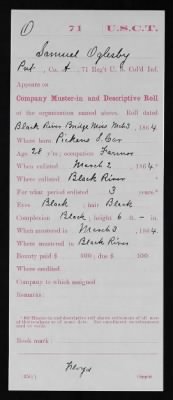 O 71 U.S.C.T.
Samuel Oglesby
Pvt., Co. A, 71 Reg't U. S. Col'd Inf.
Appears on
Company Muster-in and Descriptive Roll
of the organization named above. Roll dated
Black River Bridge Miss Mch 3, 1864.
Where born Pickens S. Car
Age 28 y'rs; occupation Farmer
When enlisted March 2, 1864*
Where enlisted Black River
For what period enlisted 3 years.*
Eyes Black; hair Black
Complexion Black; height 6 ft. – in.
When mustered in March 3, 1864.
Where mustered in Black River
Bounty paid $ 100; due $ 100
Where credited
Company to which assigned
Remarks:
Book mark:
Lloyd
(351) Copyist.